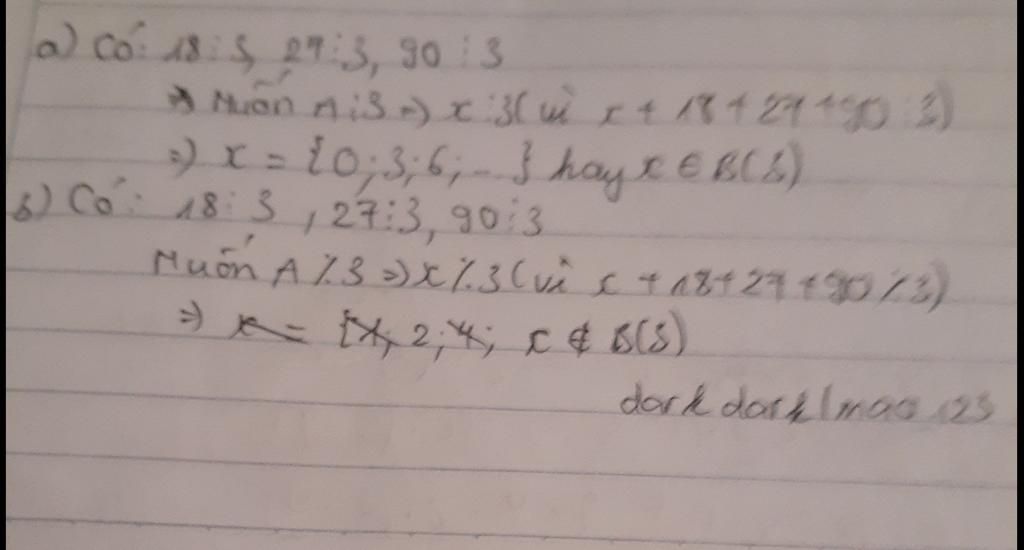 a) Có: 18⋮3, 27⋮3, 90⋮3
=> Muốn A⋮3 => x⋮3( vì x + 18 + 27 + 90 ⋮ 3)
=) x = {0; 3; 6; ...} hay x ∈ B(3)
b) Có: 18⋮3, 27⋮3, 90⋮3
Muốn A⋮̸3 => x⋮̸3( vì x + 18 + 27 + 90 ⋮̸ 3)
=) x ∉ B(3)
dark dark lmao 123